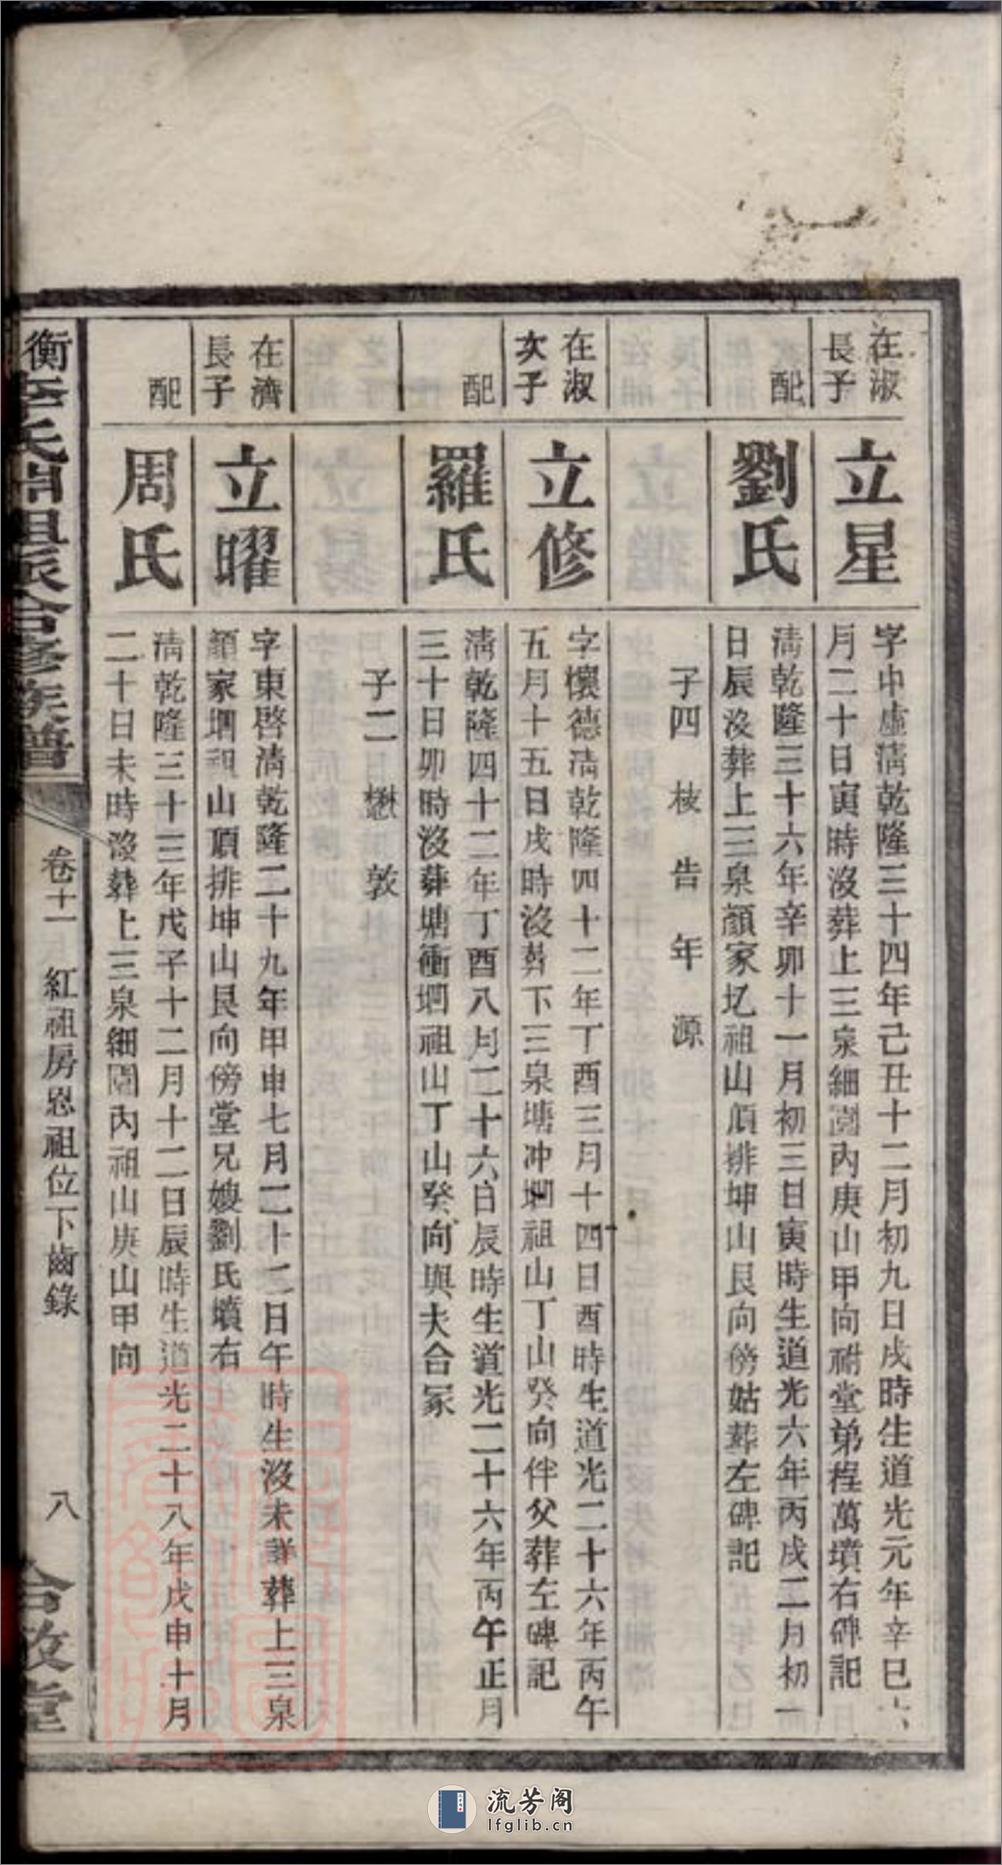 在淑
長子
立星
字中虛清乾隆三十四年己丑十二月初九日戌時生道光元年辛巳六
月二十日寅時沒葬上三泉細園內庚山甲向祔堂弟桯萬墳右碑記
配
劉氏
清乾隆三十六年辛卯十一月初三日寅時生道光六年丙戌二月初一
日辰沒葬上三泉顏家圫祖山頂排坤山艮向傍姑葬左碑記
子四 棱 告 年 源
在淑
次子
立修
字懷德清乾隆四十二年丁酉三月十四日酉時生道光二十六年丙午
五月十五日戌時沒葬下三泉塘冲堋祖山丁山癸向伴父葬左碑記
配
羅氏
清乾隆四十二年丁酉八月二十六日辰時生道光二十六年丙午正月
三十日卯時沒葬塘衝堋祖山丁山癸向與夫合冢
子二 懋 敦
在濟
長子
立曜
字東啓清乾隆二十九年甲申七月二十二日午時生沒未詳葬上三泉
顏家堋祖山頂排坤山艮向傍堂兄嫂劉氏墳右
配
周氏
清乾隆三十三年戊子十二月十二日辰時生道光二十八年戊申十月
二十日未時沒葬上三泉細園內祖山庚山甲向
衡李氏開祖派合修族譜
卷十一
紅祖房恩祖位下齒錄
八
合敬堂
流芳阁
lfglib.cn